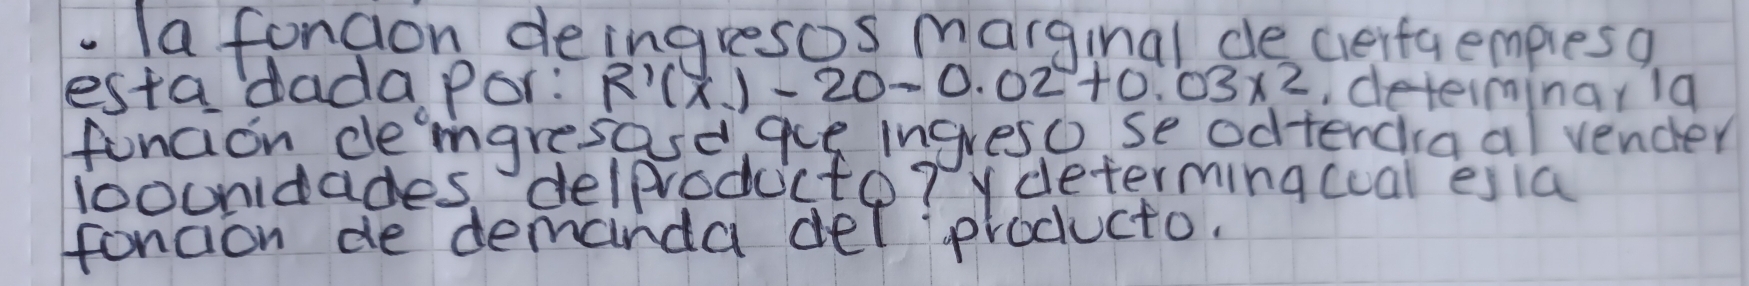 . la fonción de ingresos marginal de cierta empresa
esta dada por: R'(x) - 20 - 0.02 + 0.03x2, determinar la
función de ingresos d que ingreso se odtendra al vender
100 unidades del producto? y determina cual es la
fonción de demanda del producto.